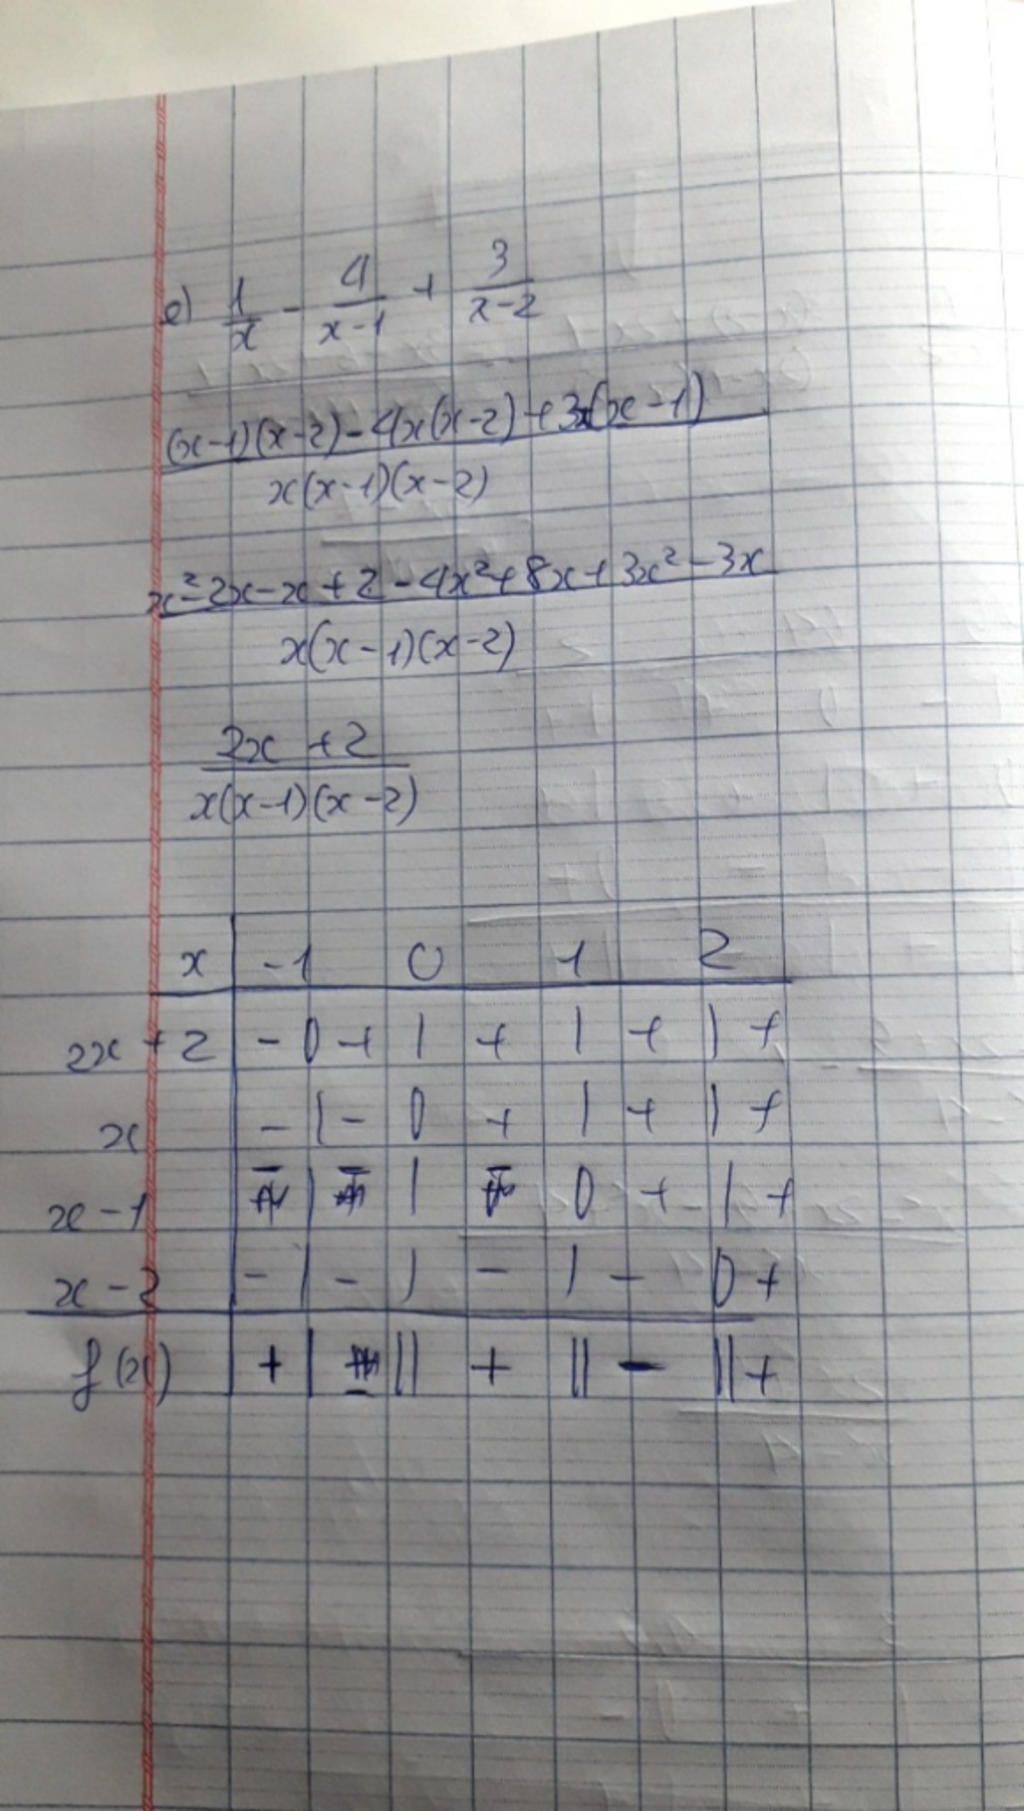 e) 1/x - 4/(x-1) + 3/(x-2)
((x-1)(x-2) - 4x(x-2) + 3x(x-1))/(x(x-1)(x-2))
(x²-2x-x+2-4x²+8x+3x²-3x)/(x(x-1)(x-2))
(2x +2)/(x(x-1)(x-2))
x | -1 0 1 2
2x+2 | - 0 + | + | + | +
x | - | - 0 + | + | +
x-1 | - | - | - 0 + | +
x-2 | - | - | - | - 0 +
f(x) | + | - || + || - || +